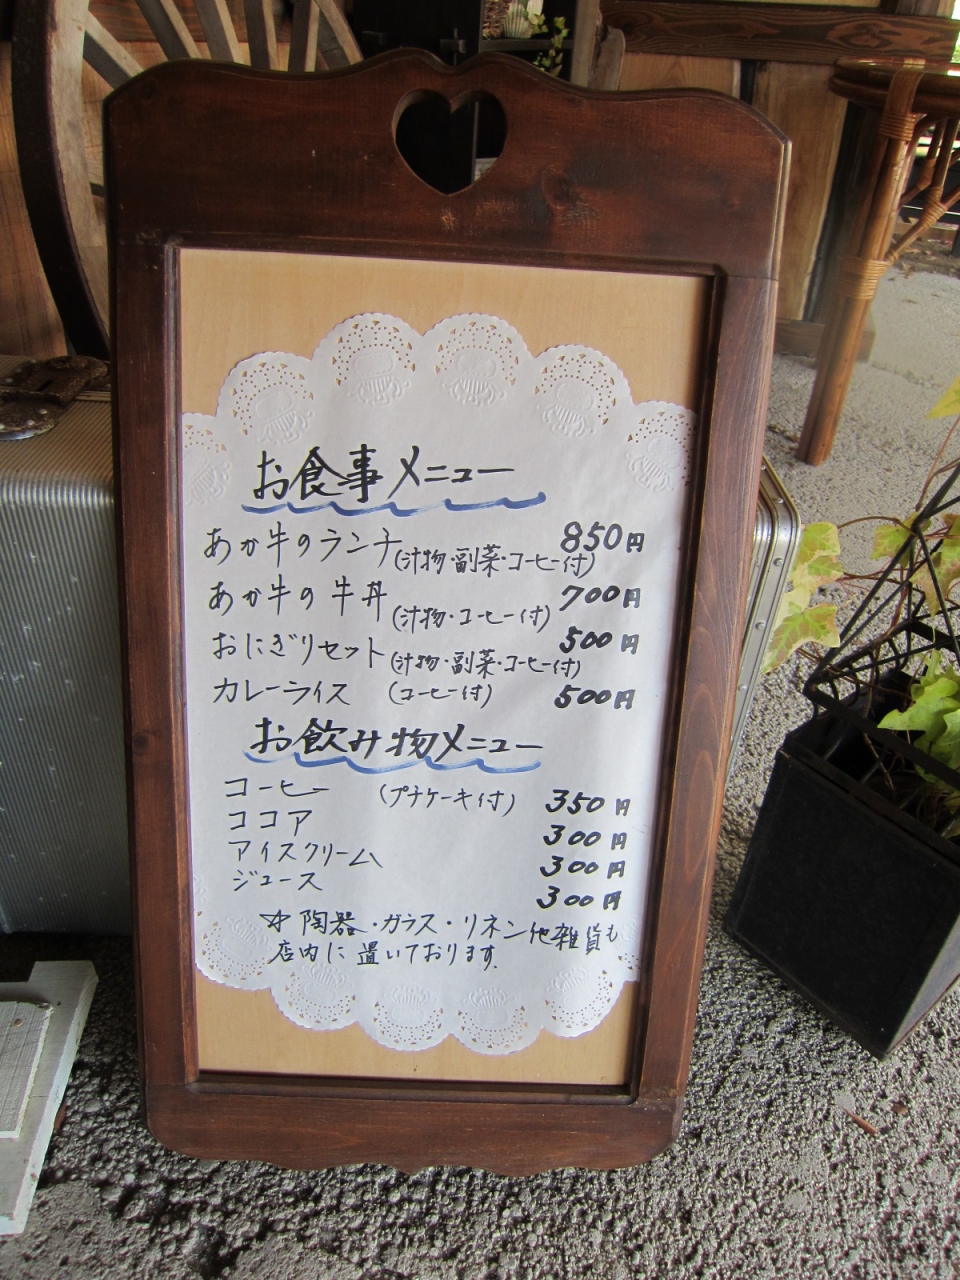 お食事メニュー
あか牛のランチ(汁物・副菜・コーヒー付) 850円
あか牛の牛丼(汁物・コーヒー付) 700円
おにぎりセット(汁物・副菜・コーヒー付) 500円
カレーライス (コーヒー付) 500円
お飲み物メニュー
コーヒー (プチケーキ付) 350円
ココア 300円
アイスクリーム 300円
ジュース 300円
☆陶器・ガラス・リネン他雑貨も
店内に置いております。